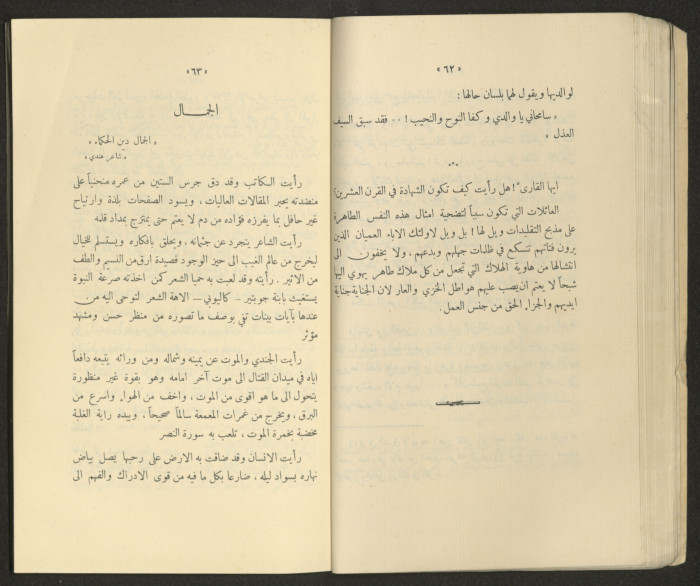 «٦٢»
لوالديها ويقول لهما بلسان حالها :
« سامحاني يا والدي وكفا النوح والنحيب ! ٠٠ فقد سبق السيف
العذل »
٠٠
ايها القارىء ! هل رأيت كيف تكون الشهادة في القرن العشرين ؟
العائلات التي تكون سبباً لتضحية امثال هذه النفس الطاهرة
على مذبح التقليدات ويل لها ! بل ويل لاولئك الاباء العميان الذين
يرون فتاتهم تتسكع في ظلمات جهلهم وبدعهم ، ولا يخفون الى
انتشالها من هاوية الهلاك التي تجعل من كل ملاك طاهر يهوي اليها
شبحاً لا يعتم ان يصب عليهم هواطل الخزي والعار لان الجناية جناية
ايديهم والجزاء الحق من جنس العمل .
«٦٣»
الجمال
« الجمال دين الحكماء »
« شاعر هندي »
رأيت الكاتب وقد دق جرس الستين من عمره منحنياً على
منضدته يحبر المقالات العاليات ، ويسود الصفحات بلذة وارتياح
غير حافل بما يفرزه فؤاده من دم لا يعتم حتى يمتزج بمداد قلمه
رأيت الشاعر يتجرد عن جثمانه . ويحلق بافكاره ويستسلم للخيال
ليخرج من عالم الغيب الى حيز الوجود قصيدة ارق من النسيم والطف
من الاثير . رأيته وقد لعبت به حميا الشعر كمن اخذته صرعة النبوة
يستغيث بابنة جوبيتير – كاليوبي – الاهة الشعر لتوحي اليه من
عندها بآيات بينات تفي بوصف ما تصوره من منظر حسن ومشهد
مؤثر
رأيت الجندي والموت عن يمينه وشماله ومن ورائه يتبعه دافعاً
اياه في ميدان القتال الى موت آخر امامه وهو بقوة غير منظورة
يتحول الى ما هو اقوى من الموت ، واخف من الهواء واسرع من
البرق ، ويخرج من غمرات المعمعة سالماً صحيحاً ، وبيده راية الغلبة
مخضبة بخمرة الموت ، تلعب به سورة النصر
رأيت الانسان وقد ضاقت به الارض على رحبها يصل بياض
نهاره بسواد ليله ، ضارعا بكل ما فيه من قوى الادراك والفهم الى